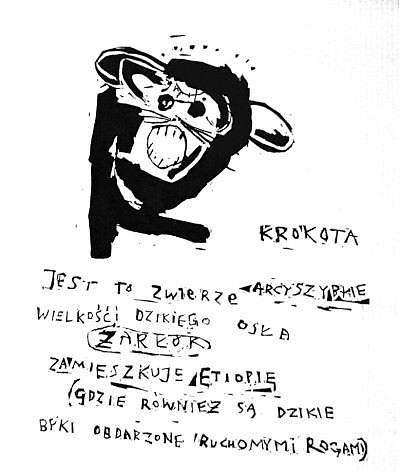 KROKOTA
JEST TO ZWIERZE ARCYSZYBKIE
WIELKOŚCI DZIKIEGO OSŁA
ŻARŁOK
ZAMIESZKUJE ETIOPIĘ
(GDZIE RÓWNIEŻ SĄ DZIKIE
BYKI OBDARZONE RUCHOMYMI ROGAMI)